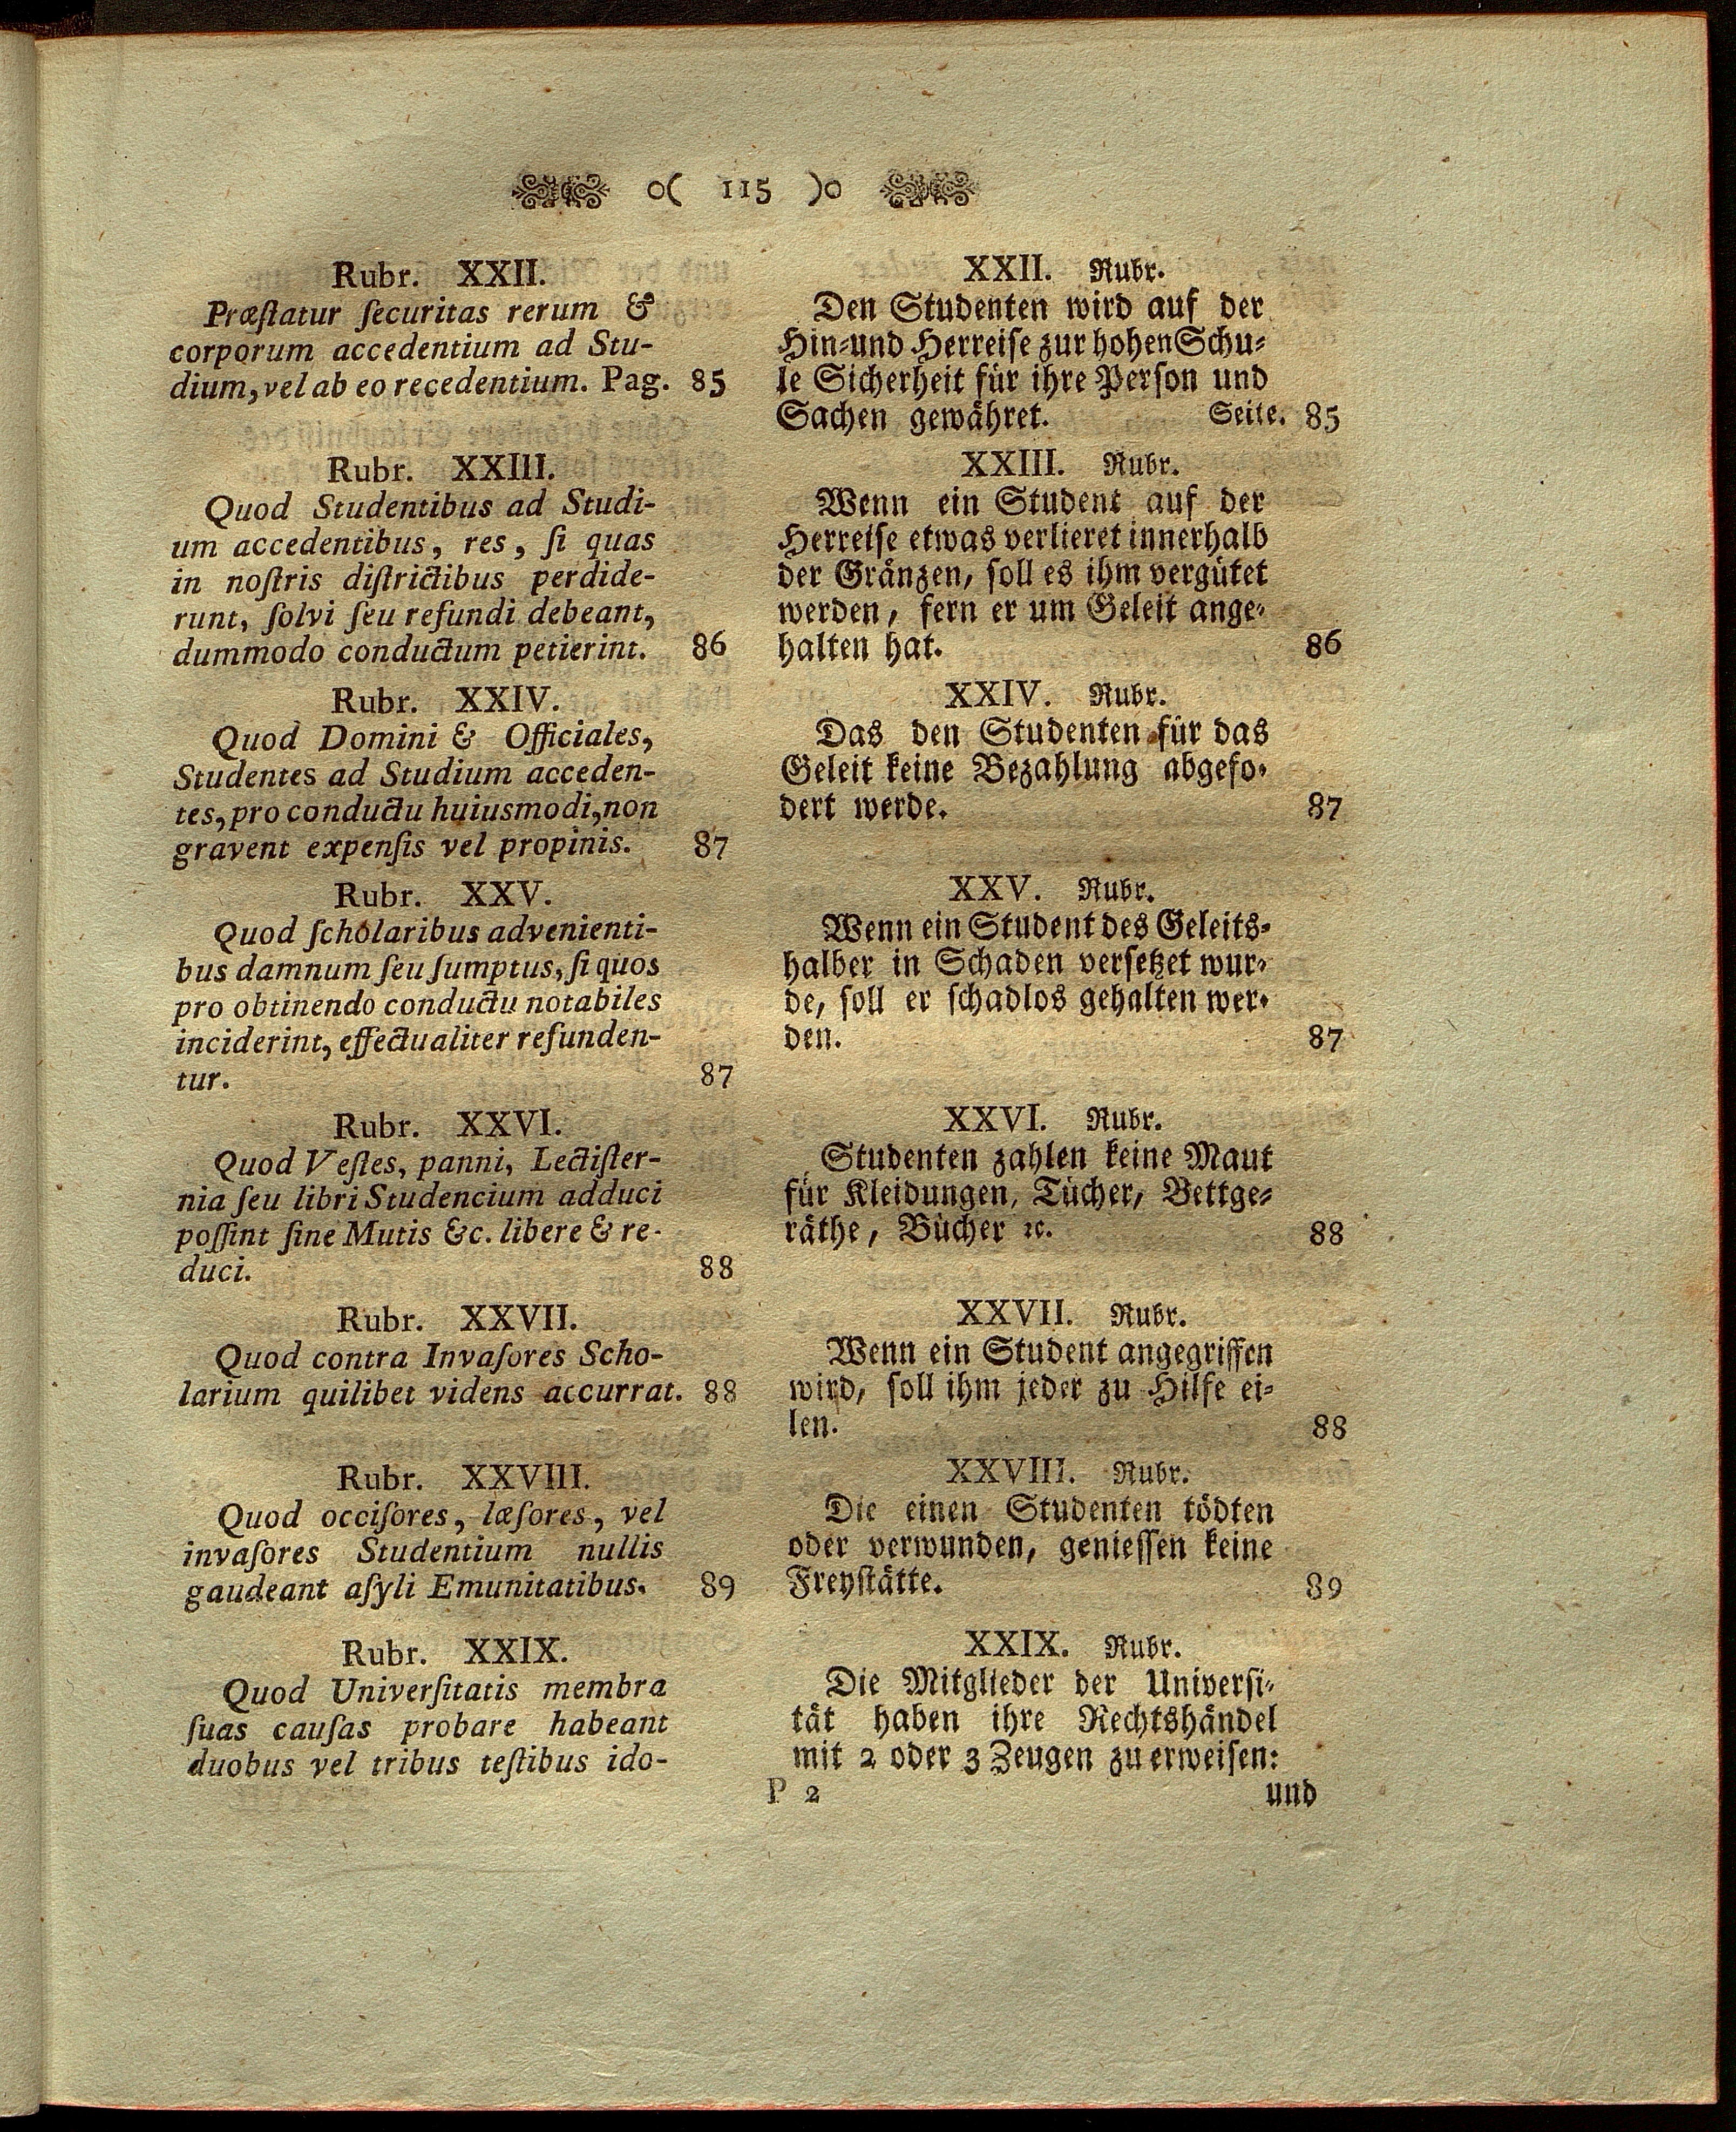 o( 115 )o
Rubr. XXII.
Præſtatur ſecuritas rerum &
corporum accedentium ad Stu-
dium, vel ab eo recedentium. Pag. 85
Rubr. XXIII.
Quod Studentibus ad Studi-
um accedentibus, res, ſi quas
in noſtris diſtrictibus perdide-
runt, ſolvi ſeu refundi debeant,
dummodo conductum petierint. 86
Rubr. XXIV.
Quod Domini & Officiales,
Studentes ad Studium acceden-
tes, pro conductu huiusmodi, non
gravent expenſis vel propinis. 87
Rubr. XXV.
Quod ſcholaribus advenienti-
bus damnum ſeu ſumptus, ſi quos
pro obtinendo conductu notabiles
inciderint, effectualiter refunden-
tur. 87
Rubr. XXVI.
Quod Veſtes, panni, Lectiſter-
nia ſeu libri Studencium adduci
poſſint ſine Mutis &c. libere & re-
duci. 88
Rubr. XXVII.
Quod contra Invaſores Scho-
larium quilibet videns accurrat. 88
Rubr. XXVIII.
Quod occiſores, læſores, vel
invaſores Studentium nullis
gaudeant aſyli Emunitatibus. 89
Rubr. XXIX.
Quod Univerſitatis membra
ſuas cauſas probare habeant
duobus vel tribus teſtibus ido-
XXII. Rubr.
Den Studenten wird auf der
Hin-und Herreiſe zur hohen Schu-
le Sicherheit für ihre Perſon und
Sachen gewähret. Seite. 85
XXIII. Rubr.
Wenn ein Student auf der
Herreiſe etwas verlieret innerhalb
der Gränzen, ſoll es ihm vergütet
werden, fern er um Geleit ange-
halten hat. 86
XXIV. Rubr.
Das den Studenten für das
Geleit keine Bezahlung abgefo-
dert werde. 87
XXV. Rubr.
Wenn ein Student des Geleits-
halber in Schaden verſetzet wur-
de, ſoll er ſchadlos gehalten wer-
den. 87
XXVI. Rubr.
Studenten zahlen keine Maut
für Kleidungen, Tücher, Bettge-
räthe, Bücher ꝛc. 88
XXVII. Rubr.
Wenn ein Student angegriffen
wird, ſoll ihm jeder zu Hilfe ei-
len. 88
XXVIII. Rubr.
Die einen Studenten tödten
oder verwunden, genieſſen keine
Freyſtätte. 89
XXIX. Rubr.
Die Mitglieder der Univerſi-
tät haben ihre Rechtshändel
mit 2 oder 3 Zeugen zu erweiſen:
P 2 und